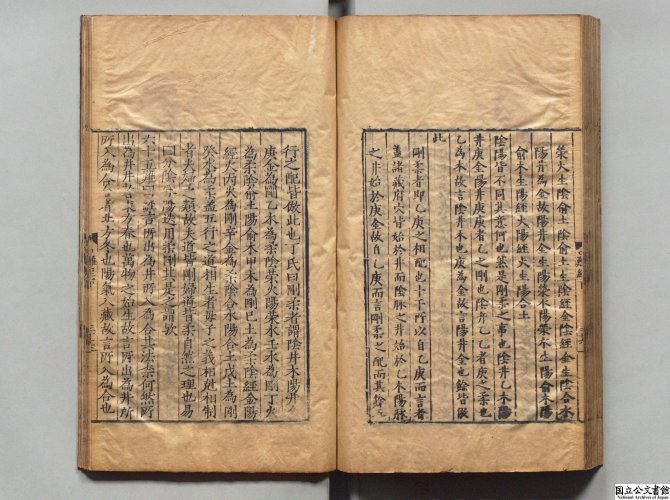 滎火生陰俞土陰俞土生陰經金陰經金生陰合水
陽井為金故陽井金生陽滎水陽滎水生陽俞木陽
俞木生陽經火陽經火生陽合土
陰陽皆不同其意何也然是剛柔之事也陰井乙木陽
井庚金陽井庚庚者乙之剛也陰井乙乙者庚之柔也
乙為木故言陰井木也庚為金故言陽井金也餘皆倣
此
剛柔者即乙庚之相配也十干所以自乙庚而言者
蓋諸藏府穴皆始於井而陰脈之井始於乙木陽脈
之井始於庚金故自乙庚而言剛柔之配而其餘五
行之配皆倣此也丁氏曰剛柔者謂陰井木陽井金
庚金為剛乙木為柔陰滎火陽滎水壬水為剛丁火
為柔陰俞土陽俞木甲木為剛己土為柔陰經金陽
經火丙火為剛辛金為柔陰合水陽合土戊土為剛
癸水為柔蓋五行之道相生者母子之義相剋相制
者夫婦之類故夫道皆剛婦道皆柔自然之理也易
曰分陰分陽迭用柔剛其是之謂歟
六十五難曰經言所出為井所入為合其法柰何然所
出為井井者東方春也萬物之始生故言所出為井所
入為合合者北方冬也陽氣入藏故言所入為合也
難經下
國立公文書館
National Archives of Japan